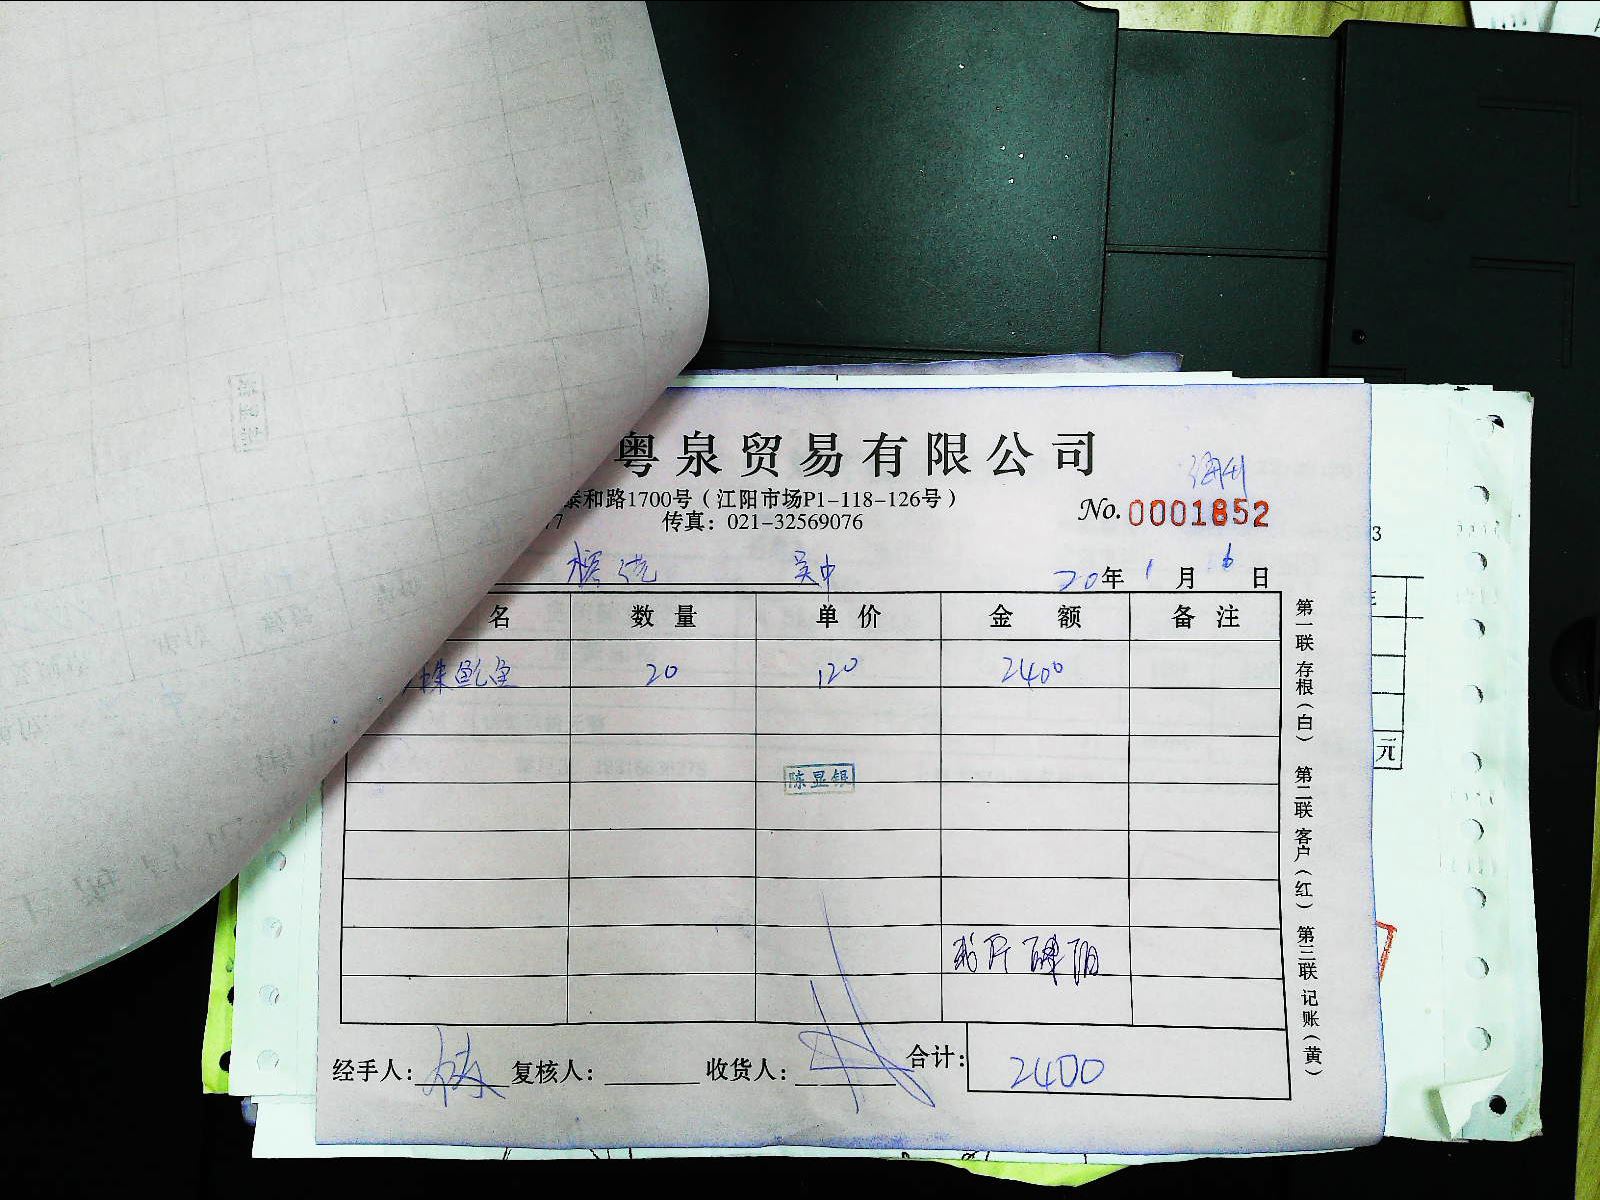 粤泉贸易有限公司
泰和路1700号（江阳市场P1-118-126号）
传真：021-32569076
No. 0001852
吴中
20年 1 月 6 日
名 数量 单价 金额 备注
珠鲍鱼 20 120 2400
陈显银
经手人： 复核人： 收货人： 合计： 2400
第一联 存根（白） 第二联 客户（红） 第三联 记账（黄）
3
元